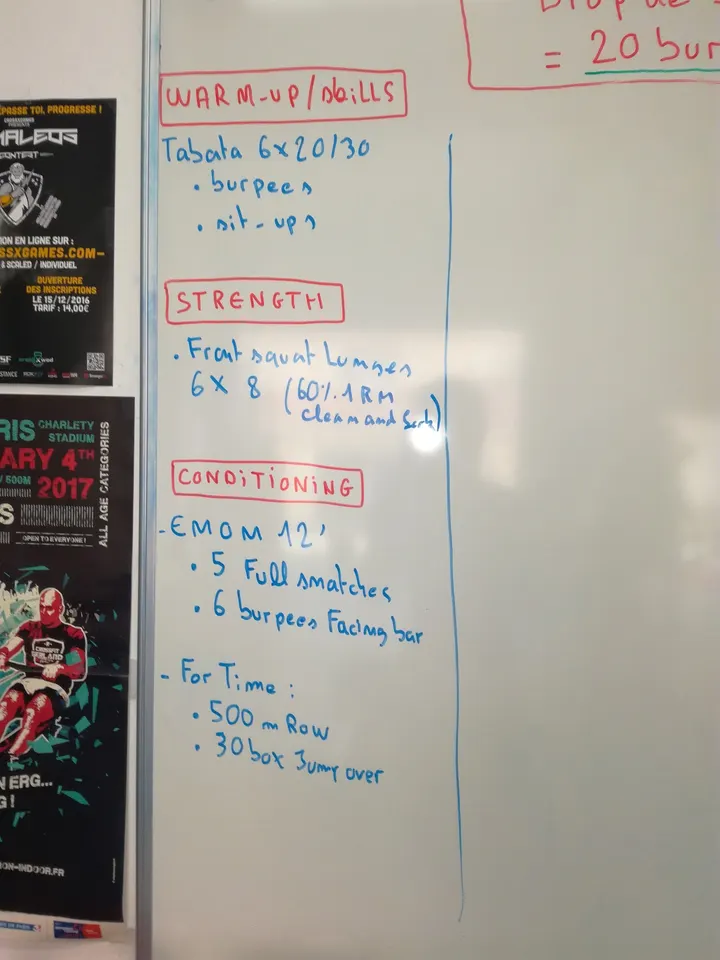 = 20 bur
WARM-UP/SKiLLS
Tabata 6x20/30
• burpees
• sit-ups
STRENGTH
• Front squat Lunges
6 X 8 (60% 1RM
clean and
CONDiTiONiNG
- EMOM 12'
• 5 Full snatches
• 6 burpees Facing bar
- For Time :
• 500 m Row
• 30 box Jump over
PASSE TOI, PROGRESSE !
MALEOS
CONTEST
ON EN LIGNE SUR :
SSXGAMES.COM
& SCALED / INDIVIDUEL
OUVERTURE
DES INSCRIPTIONS
LE 15/12/2016
TARIF : 14,00€
RIS CHARLETY
STADIUM
ARY 4TH
/ 500M 2017
ALL AGE CATEGORIES
OPEN TO EVERYONE !
N ERG...
G !
ON-INDOOR.FR